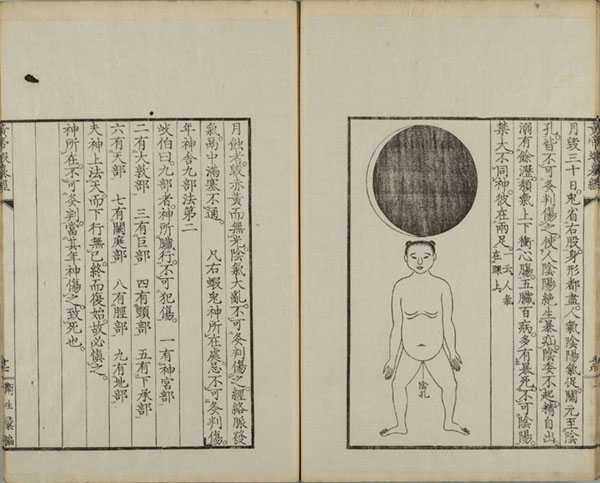 月毀三十日兎省右股身形都盡人氣陰陽氣促關元至陰
孔皆不可灸判傷之使人陰陽絶生暴疝陰委不起精自出
溺有餘瀝頬氣上下衝心膓五臟百病多有暴死不可陰陽
禁大不同神彼在兩足 一云人氣在踝上
陰孔
月蝕者毀赤黃而無光陰氣大亂不可灸判傷之經絡脈發
氣昜中滿塞不通 凡右蝦兎神所在處忌不可灸判傷
年神舍九部法第二
岐伯曰九部者神所臓行不可犯傷 一有神宮部
二有大敦部 三有巨部 四有頸部 五有下承部
六有天部 七有闕庭部 八有脛部 九有地部
夫神上法天而下行無已終而復始故必慎之
神所在不可灸判當其年神傷之致死也
黃帝蝦蟇經
衛生彙編